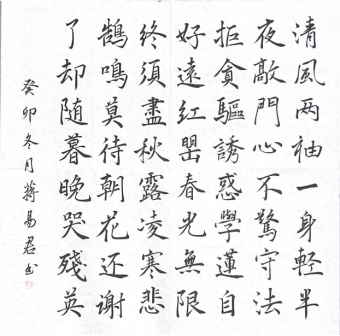 清風两袖一身輕半
夜敲門心不驚守法
拒貪驅誘惑學蓮自
好遠紅罌春光無限
終須盡秋露凌寒悲
鵠鳴莫待朝花还谢
了却随暮晚哭殘英
癸卯冬月蒋易君书